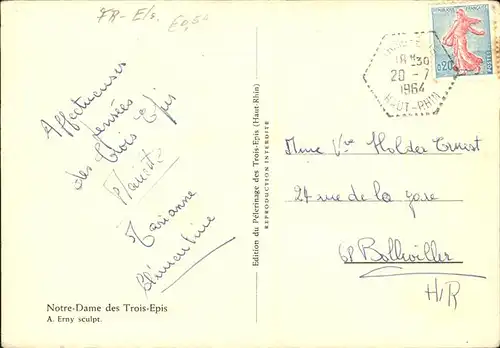 FR-E/s.
Affectueuses
pensées
des Trois Epis
Marianne
Clémentine
Notre-Dame des Trois-Epis
A. Erny sculpt.
Edition du Pélerinage des Trois-Epis (Haut-Rhin)
REPRODUCTION INTERDITE
18 H30
20 - 7
1964
HAUT-RHIN
0,20
Mme Vve Holder Ernst
27 rue de la gare
68 Bollwiller
H/R